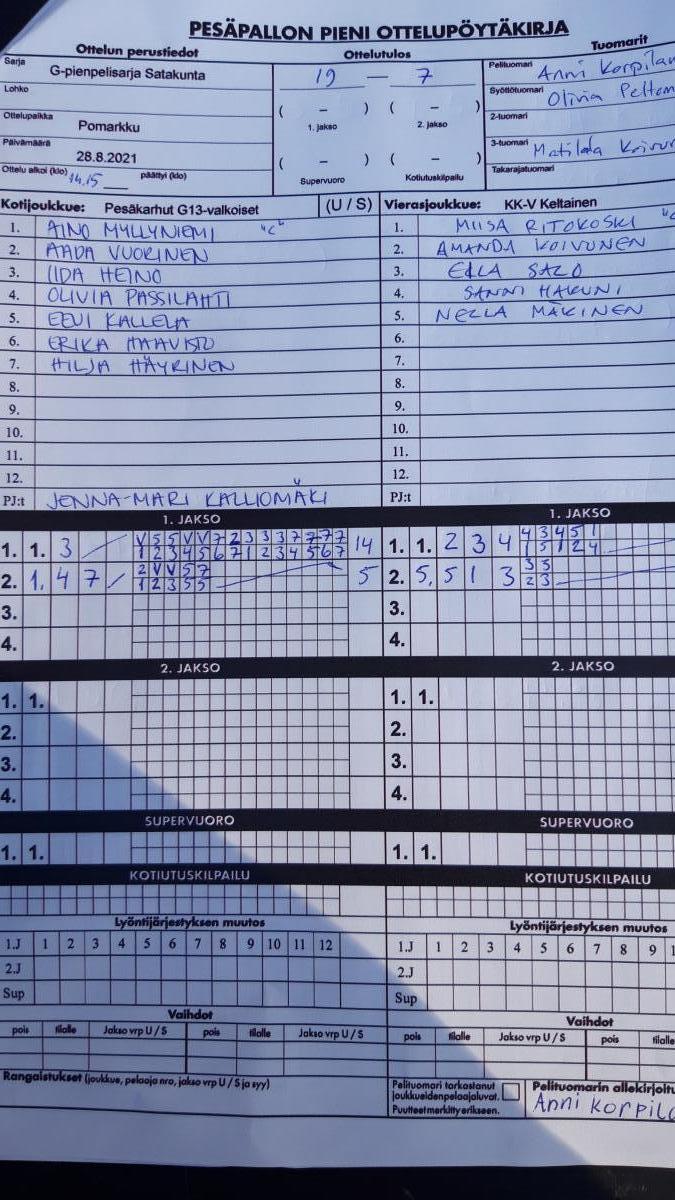 PESÄPALLON PIENI OTTELUPÖYTÄKIRJA
Ottelun perustiedot
Sarja
G-pienpelisarja Satakunta
Lohko
Ottelupaikka
Pomarkku
Päivämäärä
28.8.2021
Ottelu alkoi (klo) 14.15 päättyi (klo)
Ottelutulos
19 — 7
( – ) ( – )
1. jakso 2. jakso
( – ) ( – )
Supervuoro Kotiutuskilpailu
Tuomarit
Pelituomari Anni
Syöttötuomari Olivia
2-tuomari
3-tuomari Matilda
Takarajatuomari
Kotijoukkue: Pesäkarhut G13-valkoiset (U / S)
1. AINO MYLLYNIEMI "C"
2. AADA VUORINEN
3. IIDA HEINO
4. OLIVIA PASSILAHTI
5. EEVI KALLELA
6. ERIKA HAAVISTO
7. HILJA HÄYRINEN
8.
9.
10.
11.
12.
PJ:t JENNA-MARI KALLIOMÄKI
Vierasjoukkue: KK-V Keltainen
1. MIISA RITOKOSKI "C
2. AMANDA KOIVUNEN
3. ELLA SALO
4. SANNI HAKUNI
5. NELLA MÄKINEN
6.
7.
8.
9.
10.
11.
12.
PJ:t
1. JAKSO
V 5 5 V V 7 2 3 3 3 7 7 7 7
1. 1. 3 1 2 3 4 5 6 7 1 2 3 4 5 6 7 14
2 V V 5 7
2. 1, 4 7 1 2 3 5 5 5
3.
4.
1. JAKSO
4 3 4 5 1
1. 1. 2 3 4 1 5 1 2 4
3 5
2. 5, 5 1 3 2 3
3.
4.
2. JAKSO
1. 1.
2.
3.
4.
2. JAKSO
1. 1.
2.
3.
4.
SUPERVUORO
1. 1.
SUPERVUORO
1. 1.
KOTIUTUSKILPAILU
KOTIUTUSKILPAILU
Lyöntijärjestyksen muutos
1.J 1 2 3 4 5 6 7 8 9 10 11 12
2.J
Sup
Lyöntijärjestyksen muutos
1.J 1 2 3 4 5 6 7 8 9 1
2.J
Sup
Vaihdot
pois tilalle Jakso vrp U / S pois tilalle Jakso vrp U / S
Vaihdot
pois tilalle Jakso vrp U / S pois tilalle
Rangaistukset (joukkue, pelaaja nro, jakso vrp U / S ja syy)
Pelituomari tarkastanut
joukkueidenpelaajaluvat.
Puutteet merkitty erikseen.
Pelituomarin allekirjoitu
Anni